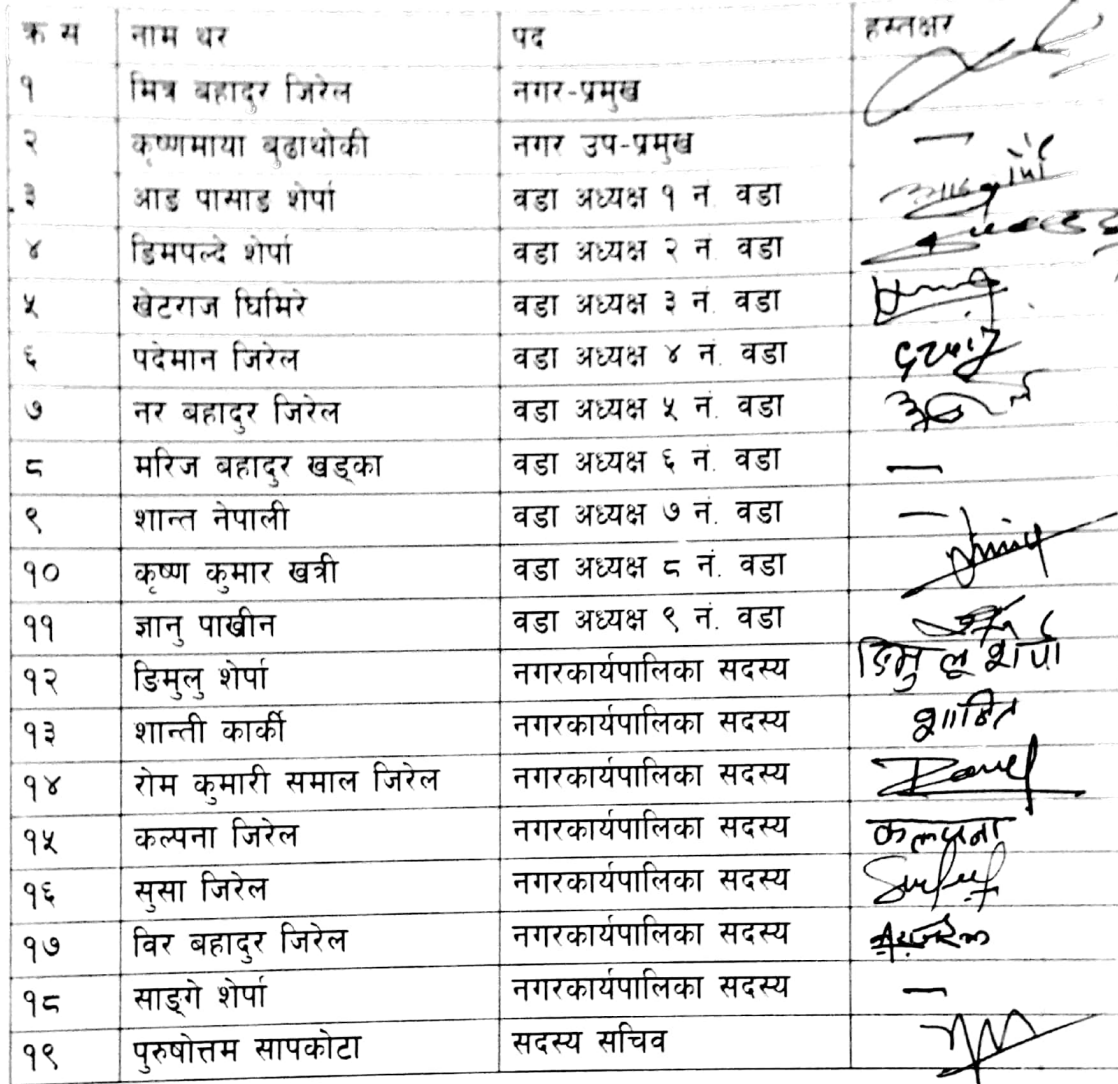 क्र स नाम थर पद हस्तक्षर
१ मित्र बहादुर जिरेल नगर-प्रमुख
२ कृष्णमाया बुढाथोकी नगर उप-प्रमुख —
३ आङ पासाङ शेर्पा वडा अध्यक्ष १ नं. वडा
४ ङिमपल्दे शेर्पा वडा अध्यक्ष २ नं. वडा
५ खेटराज घिमिरे वडा अध्यक्ष ३ नं. वडा
६ पदेमान जिरेल वडा अध्यक्ष ४ नं. वडा
७ नर बहादुर जिरेल वडा अध्यक्ष ५ नं. वडा
८ मरिज बहादुर खड्का वडा अध्यक्ष ६ नं. वडा —
९ शान्त नेपाली वडा अध्यक्ष ७ नं. वडा —
१० कृष्ण कुमार खत्री वडा अध्यक्ष ८ नं. वडा
११ ज्ञानु पाख्रीन वडा अध्यक्ष ९ नं. वडा
१२ ङिमुलु शेर्पा नगरकार्यपालिका सदस्य ङिमु लू शेर्पा
१३ शान्ती कार्की नगरकार्यपालिका सदस्य शान्ति
१४ रोम कुमारी समाल जिरेल नगरकार्यपालिका सदस्य
१५ कल्पना जिरेल नगरकार्यपालिका सदस्य कल्पना
१६ सुसा जिरेल नगरकार्यपालिका सदस्य
१७ विर बहादुर जिरेल नगरकार्यपालिका सदस्य
१८ साङ्गे शेर्पा नगरकार्यपालिका सदस्य —
१९ पुरुषोत्तम सापकोटा सदस्य सचिव